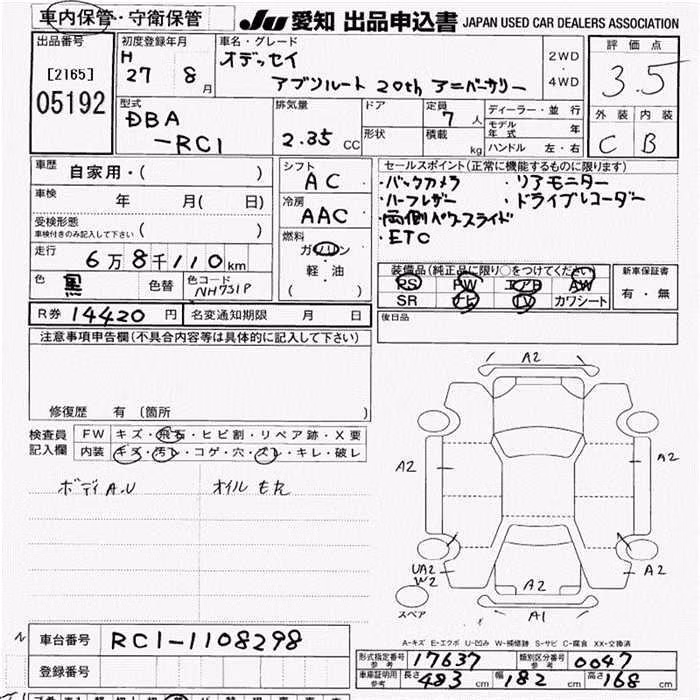 車内保管・守衛保管
JU 愛知 出品申込書 JAPAN USED CAR DEALERS ASSOCIATION
出品番号
[2165]
05192
初度登録年月
H
27 8月
車名・グレード
オデッセイ
アブソルート 20th アニバーサリー
2WD
・
4WD
評価点
3.5
外装 内装
C B
型式
DBA
-RC1
排気量
2.35 CC
ドア
形状
定員
7 人
積載
kg
ディーラー・並行
モデル年式 年
ハンドル 左・右
車歴 自家用・( )
車検 年 月( 日)
受検形態
車検付きのみ記入して下さい ( )
走行 6万8千110km
色 黒 色替 色コード NH731P
シフト
AC
冷房
AAC
燃料
ガソリン
・
軽・油
( )
セールスポイント(正常に機能するものに限ります)
・バックカメラ ・リアモニター
・ハーフレザー ・ドライブレコーダー
・両側パワースライド
・ETC
装備品(純正品に限り○をつけてください)
PS PW エアB AW
SR ナビ TV カワシート
新車保証書
有・無
R券 14420 円 名変通知期限 月 日
後日品
注意事項申告欄(不具合内容等は具体的に記入して下さい)
修復歴 有 (箇所 )
検査員
記入欄
FW キズ・飛石・ヒビ割・リペア跡・X要
内装 キズ・汚レ・コゲ・穴・スレ・キレ・破レ
ボディA.U オイルもれ
A2
A2
A2
UA2
W2
A2
A2
A1
スペア
A-キズ E-エクボ U-凹み W-補修跡 S-サビ C-腐食 XX-交換済
車台番号 RC1-1108298
登録番号
型式指定番号
参考 17637
類別区分番号
参考 0047
車庫証明用
参考 長さ 483 cm 幅 182 cm 高さ 168 cm